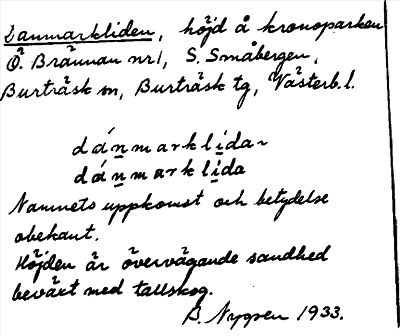 Danmarkliden, höjd å kronoparken
Ö. Brännan nr 1, S. Småbergen,
Burträsk sn, Burträsk tg, Västerb. l.
dánmarklídan
dánmarklída
Namnets uppkomst och betydelse
obekant.
Höjden är övervägande sandhed
beväxt med tallskog.
B. Nygren 1933.